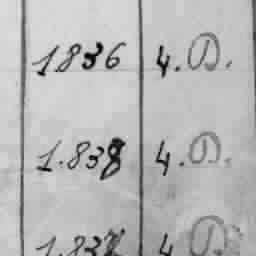 1836 4. D.
1.838 4. D.
1.837 4 D